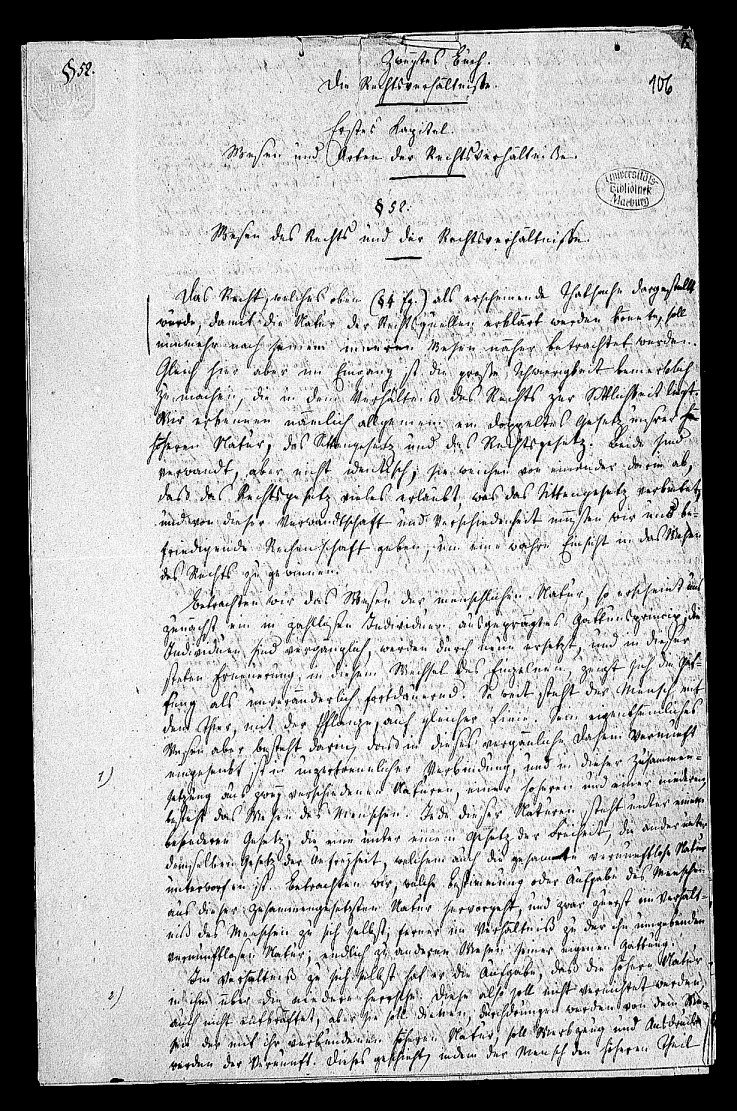 § 52.
Zweytes Buch.
Die Rechtsverhältnisse.
106
Erstes Kapitel.
Wesen und Arten der Rechtsverhältnisse.
Universitäts-
Bibliothek
Marburg
§ 52.
Wesen des Rechts und der Rechtsverhältnisse.
Das Recht, welches oben (§ 4 fg.) als erscheinende Thatsache dargestellt
wurde, damit die Natur der Rechtsquellen erklärt werden konnte, soll
nunmehr nach seinem inneren Wesen näher betrachtet werden.
Gleich hier aber im Eingang ist die große Schwierigkeit bemerklich
zu machen, die in dem Verhältniß des Rechts zur Sittlichkeit liegt.
Wir erkennen nämlich allgemein ein doppeltes Gesetz unsrer
höheren Natur, das Sittengesetz und das Rechtsgesetz. Beide sind
verwandt, aber nicht identisch; sie weichen von einander darin ab,
daß das Rechtsgesetz vieles erlaubt, was das Sittengesetz verbietet,
und von dieser Verwandtschaft und Verschiedenheit müssen wir uns be-
friedigende Rechenschaft geben, um eine wahre Einsicht in das Wesen
des Rechts zu gewinnen.
Betrachten wir das Wesen der menschlichen Natur, so erscheint uns
zunächst ein in zahllosen Individuen ausgeprägtes Gattungsprincip; die
Individuen sind vergänglich, werden durch neue ersetzt, und in dieser
steten Erneuerung, in diesem Wechsel des Einzelnen, zeigt sich die Gat-
tung als unveränderlich fortdauernd. So weit steht der Mensch mit
dem Thier, mit der Pflanze, auf gleicher Linie. Sein eigenthümliches
Wesen aber besteht darin, daß in dieses vergängliche Daseyn Vernunft
1)
eingesenkt ist in unzertrennlicher Verbindung, und in dieser Zusammen-
setzung aus zwey verschiedenen Naturen, einer höheren und einer niederen,
besteht das Wesen des Menschen. Jede dieser Naturen steht unter einem
besonderen Gesetz, die eine unter einem Gesetz der Freiheit, die andere unter
demselben Gesetz der Unfreiheit, welchem auch die gesammte vernunftlose Natur
unterworfen ist. Betrachten wir, welche Bestimmung oder Aufgabe des Menschen
aus dieser zusammengesetzten Natur hervorgeht, und zwar zuerst im Verhält-
niß des Menschen zu sich selbst, ferner im Verhältniß zu der ihn umgebenden
vernunftlosen Natur, endlich zu anderen Wesen seiner eigenen Gattung.
Im Verhältniß zu sich selbst hat er die Aufgabe, daß die höhere Natur
2)
in ihm über die niedere herrsche. Diese also soll nicht vernichtet werden,
auch nicht entkräftet, aber sie soll dienen, durchdrungen werden von dem
der mit ihr verbundenen höheren Natur, soll Werkzeug und Ausdruck
werden der Vernunft. Dieses geschieht, indem der Mensch den höheren Theil